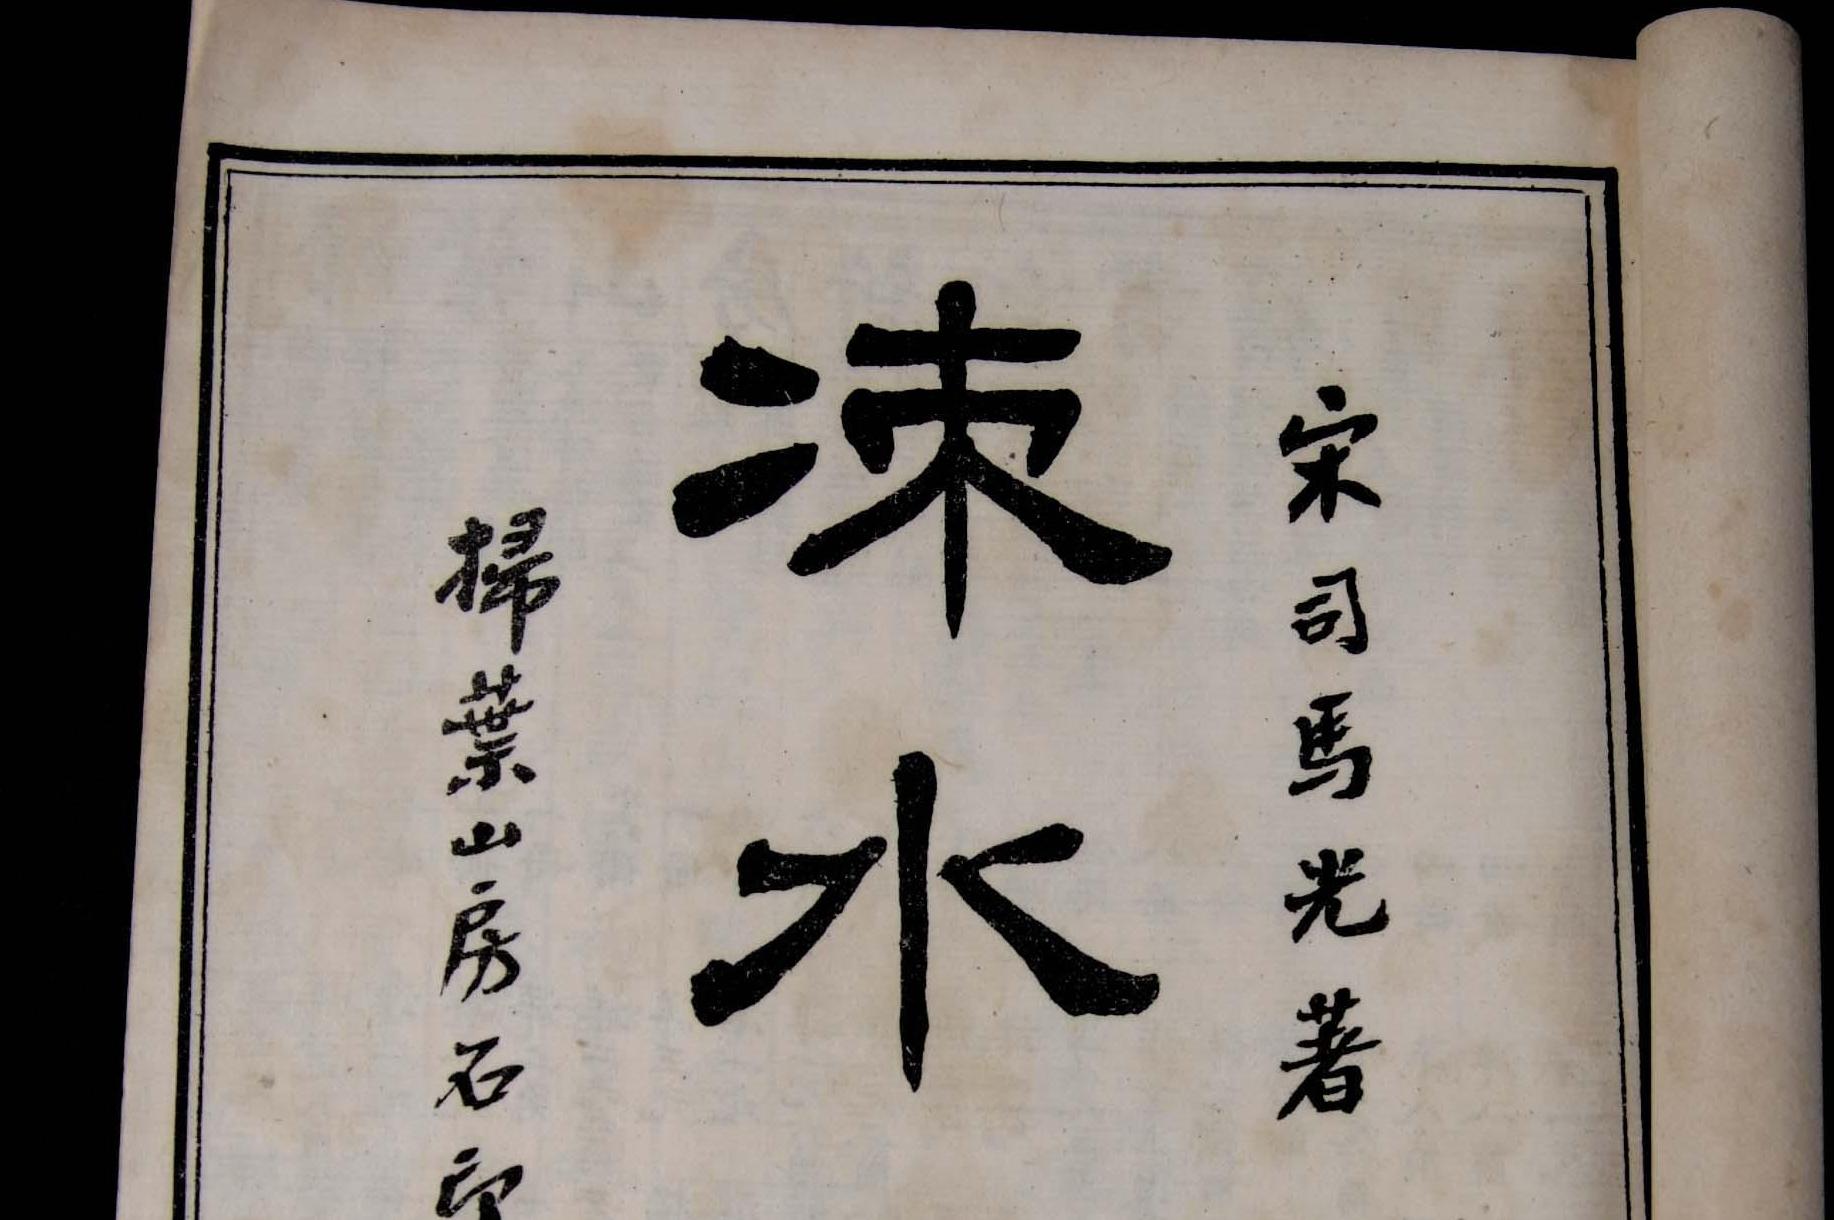 宋司馬光著
涑水
掃葉山房石印